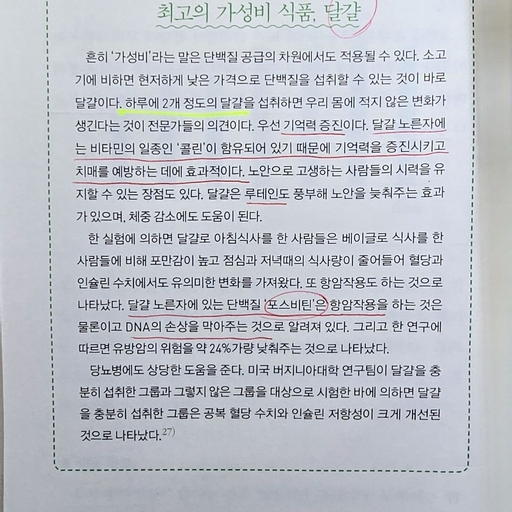 최고의 가성비 식품, 달걀
흔히 '가성비'라는 말은 단백질 공급의 차원에서도 적용될 수 있다. 소고
기에 비하면 현저하게 낮은 가격으로 단백질을 섭취할 수 있는 것이 바로
달걀이다. 하루에 2개 정도의 달걀을 섭취하면 우리 몸에 적지 않은 변화가
생긴다는 것이 전문가들의 의견이다. 우선 기억력 증진이다. 달걀 노른자에
는 비타민의 일종인 '콜린'이 함유되어 있기 때문에 기억력을 증진시키고
치매를 예방하는 데에 효과적이다. 노안으로 고생하는 사람들의 시력을 유
지할 수 있는 장점도 있다. 달걀은 루테인도 풍부해 노안을 늦춰주는 효과
가 있으며, 체중 감소에도 도움이 된다.
한 실험에 의하면 달걀로 아침식사를 한 사람들은 베이글로 식사를 한
사람들에 비해 포만감이 높고 점심과 저녁때의 식사량이 줄어들어 혈당과
인슐린 수치에서도 유의미한 변화를 가져왔다. 또 항암작용도 하는 것으로
나타났다. 달걀 노른자에 있는 단백질 '포스비틴'은 항암작용을 하는 것은
물론이고 DNA의 손상을 막아주는 것으로 알려져 있다. 그리고 한 연구에
따르면 유방암의 위험을 약 24%가량 낮춰주는 것으로 나타났다.
당뇨병에도 상당한 도움을 준다. 미국 버지니아대학 연구팀이 달걀을 충
분히 섭취한 그룹과 그렇지 않은 그룹을 대상으로 시험한 바에 의하면 달걀
을 충분히 섭취한 그룹은 공복 혈당 수치와 인슐린 저항성이 크게 개선된
것으로 나타났다.27)